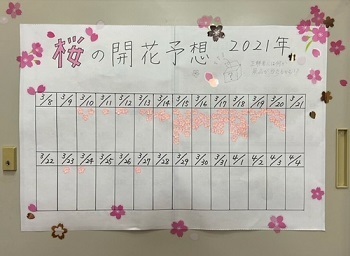 桜の開花予想 2021年
3/8 3/9 3/10 3/11 3/12 3/13 3/14 3/15 3/16 3/17 3/18 3/19 3/20 3/21
3/22 3/23 3/24 3/25 3/26 3/27 3/28 3/29 3/30 3/31 4/1 4/2 4/3 4/4